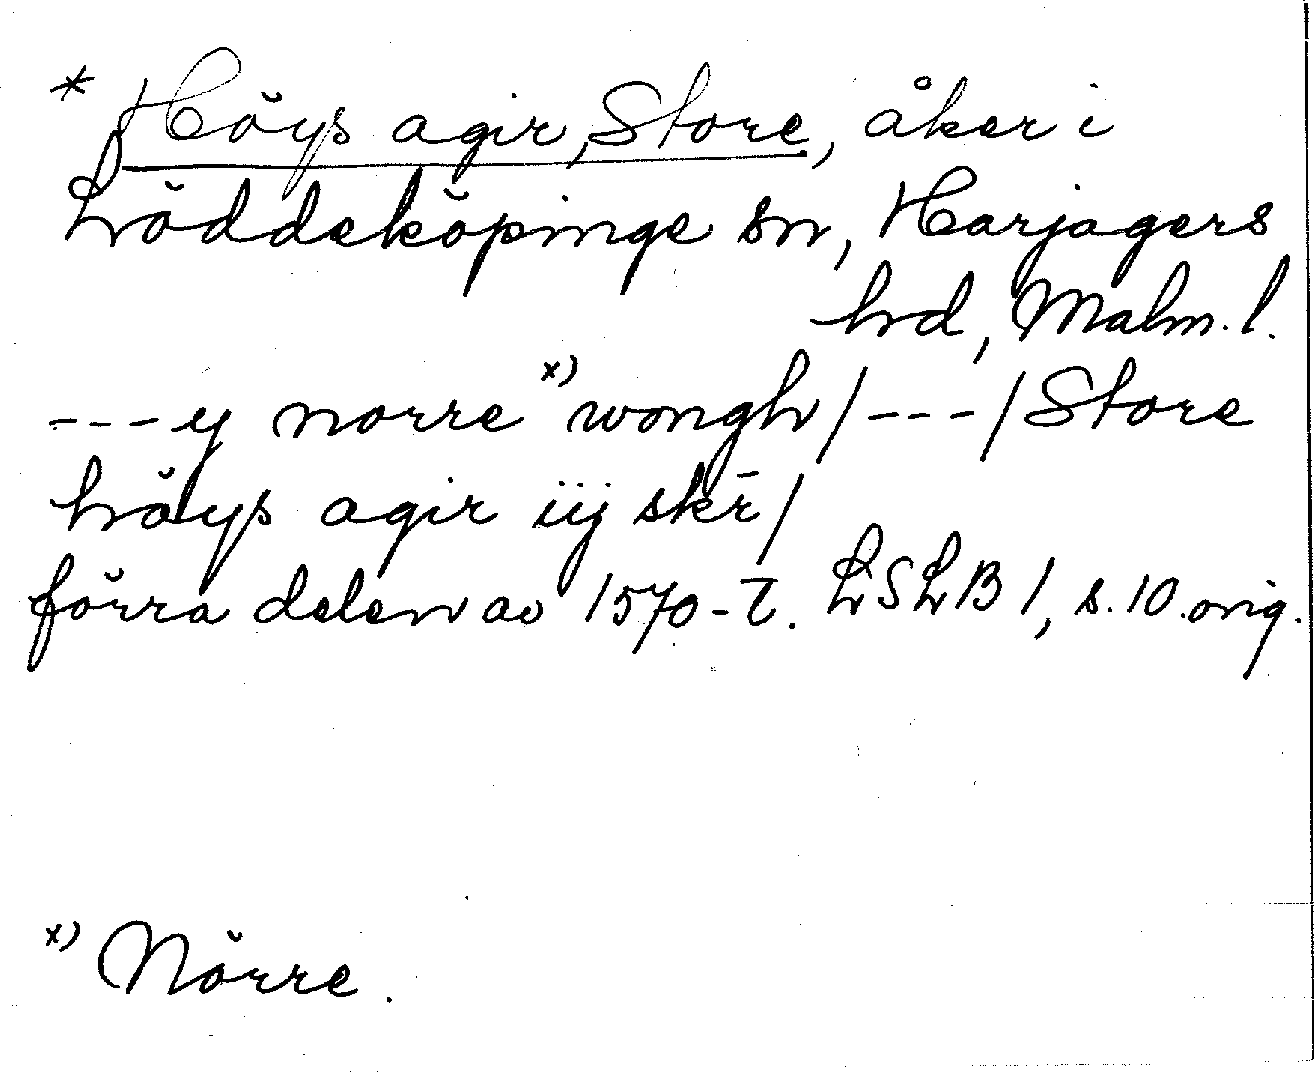 * Höys agir, Store, åker i
Löddeköpinge sn, Harjagers
hrd, Malm. l.
---y norre x) wongh/---/Store
höys agir iij skē/
förra delen av 1570-t. LSLB 1, s. 10. orig.
x) Nörre.